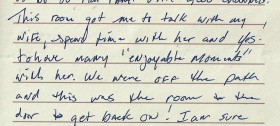 This room got me to talk with my
wife, spend time with her and yes-
to have many "enjoyable moments"
with her. We were off the path
and this was the room & the
door to get back on. I am sure